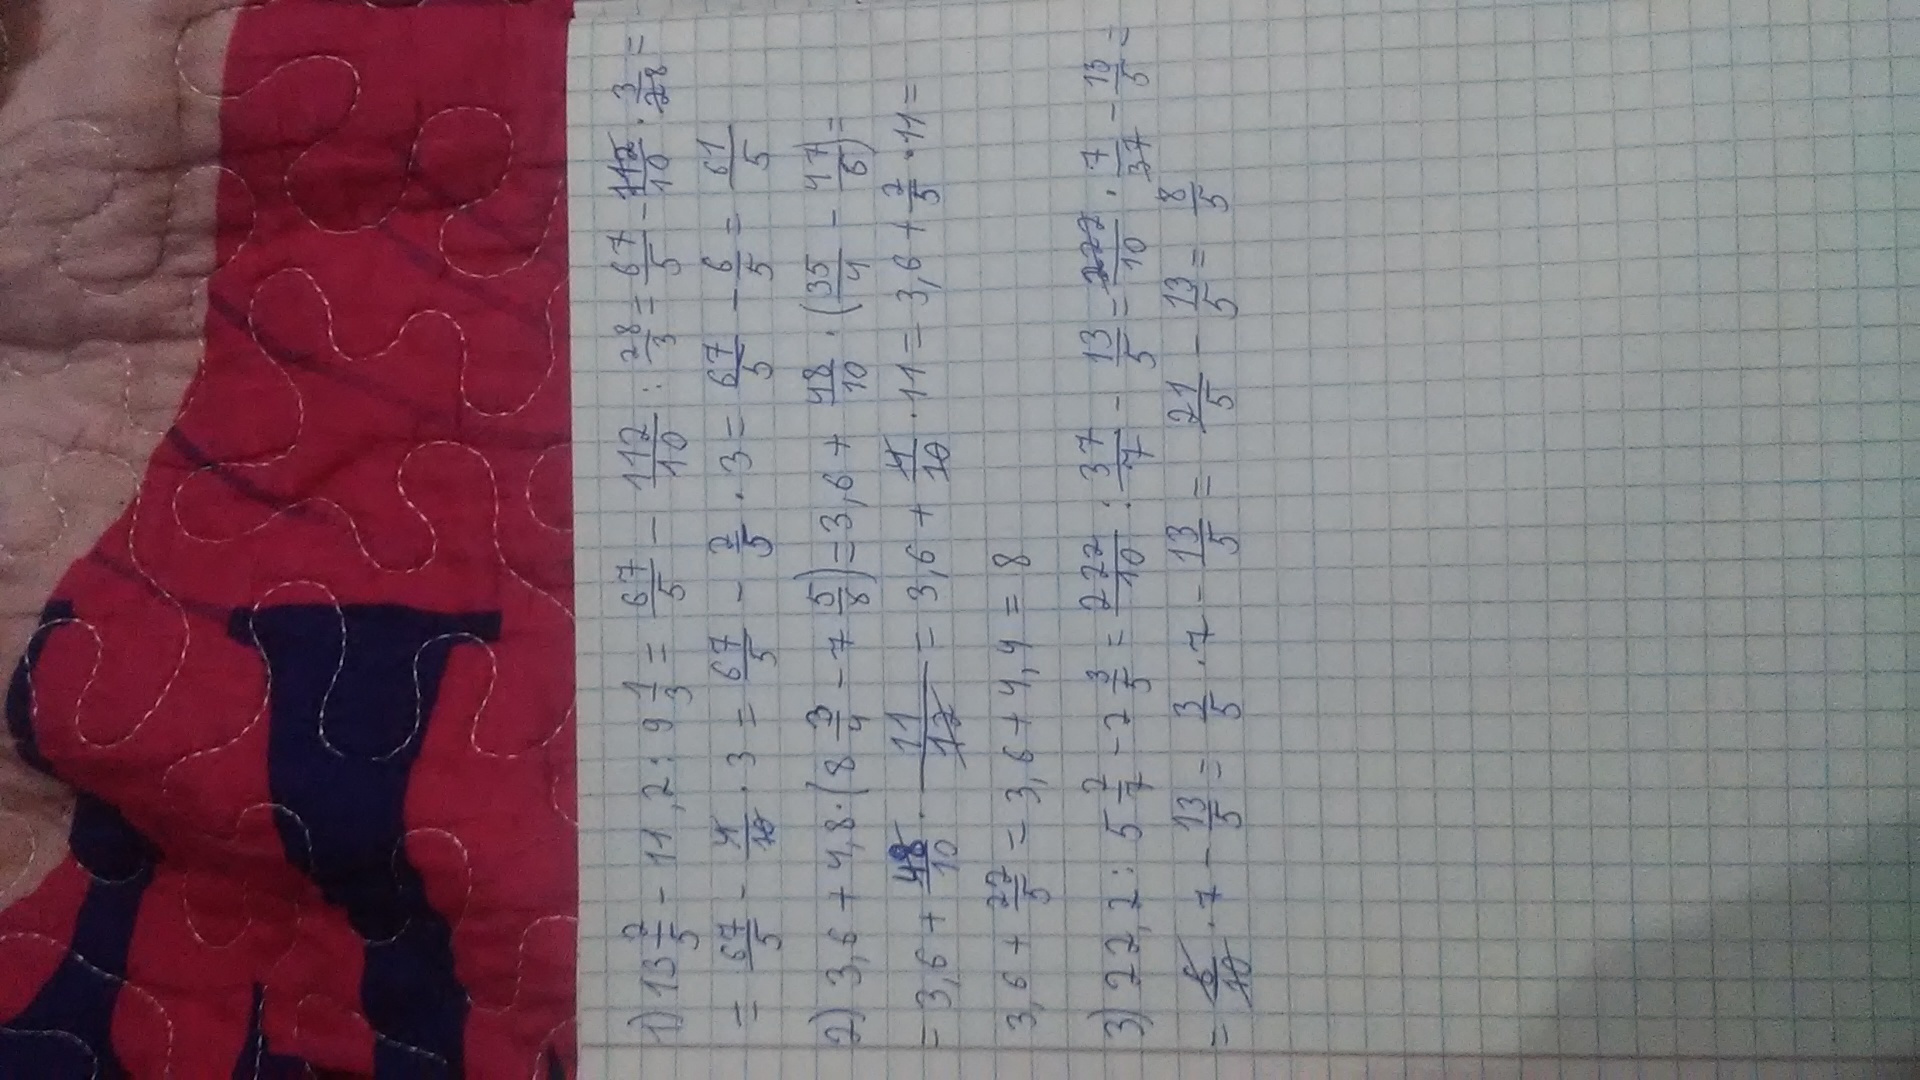 1) 13 2/5 - 11,2 : 9 1/3 = 67/5 - 112/10 : 28/3 = 67/5 - 112/10 · 3/28 =
= 67/5 - 4/10 · 3 = 67/5 - 2/5 · 3 = 67/5 - 6/5 = 61/5
2) 3,6 + 4,8 · (8 3/4 - 7 5/8) = 3,6 + 48/10 · (35/4 - 47/6) =
= 3,6 + 48/10 · 11/12 = 3,6 + 4/10 · 11 = 3,6 + 2/5 · 11 =
3,6 + 22/5 = 3,6 + 4,4 = 8
3) 22,2 : 5 2/7 - 2 3/5 = 222/10 : 37/7 - 13/5 = 222/10 · 7/37 - 13/5 =
= 6/10 · 7 - 13/5 = 3/5 · 7 - 13/5 = 21/5 - 13/5 = 8/5